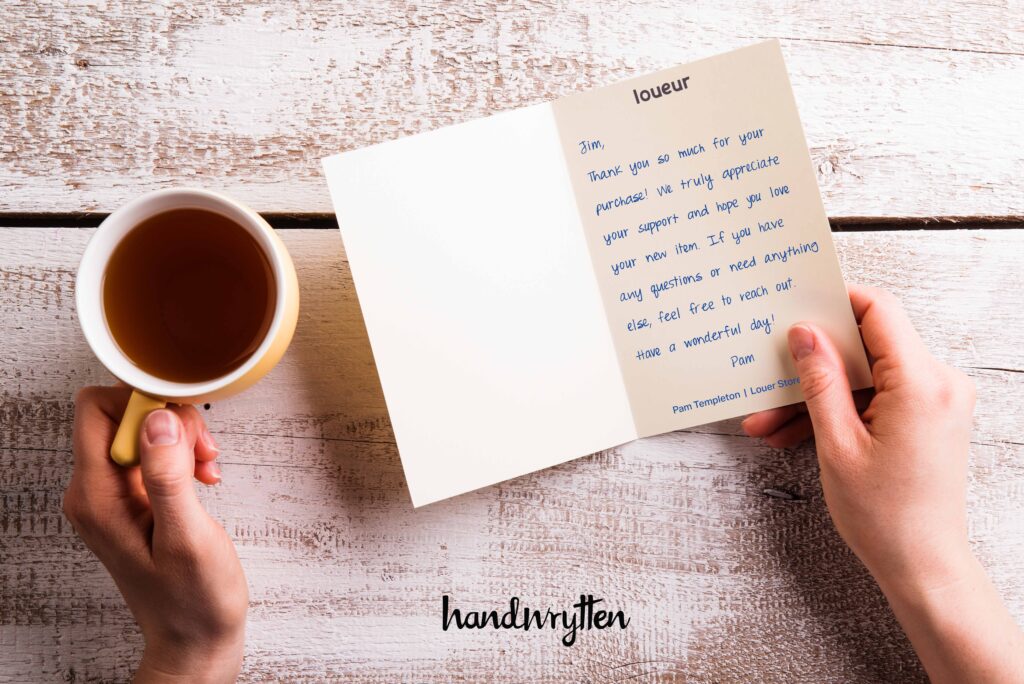 loueur
Jim,
Thank you so much for your
purchase! We truly appreciate
your support and hope you love
your new item. If you have
any questions or need anything
else, feel free to reach out.
Have a wonderful day!
Pam
Pam Templeton | Louer Store
handwrytten